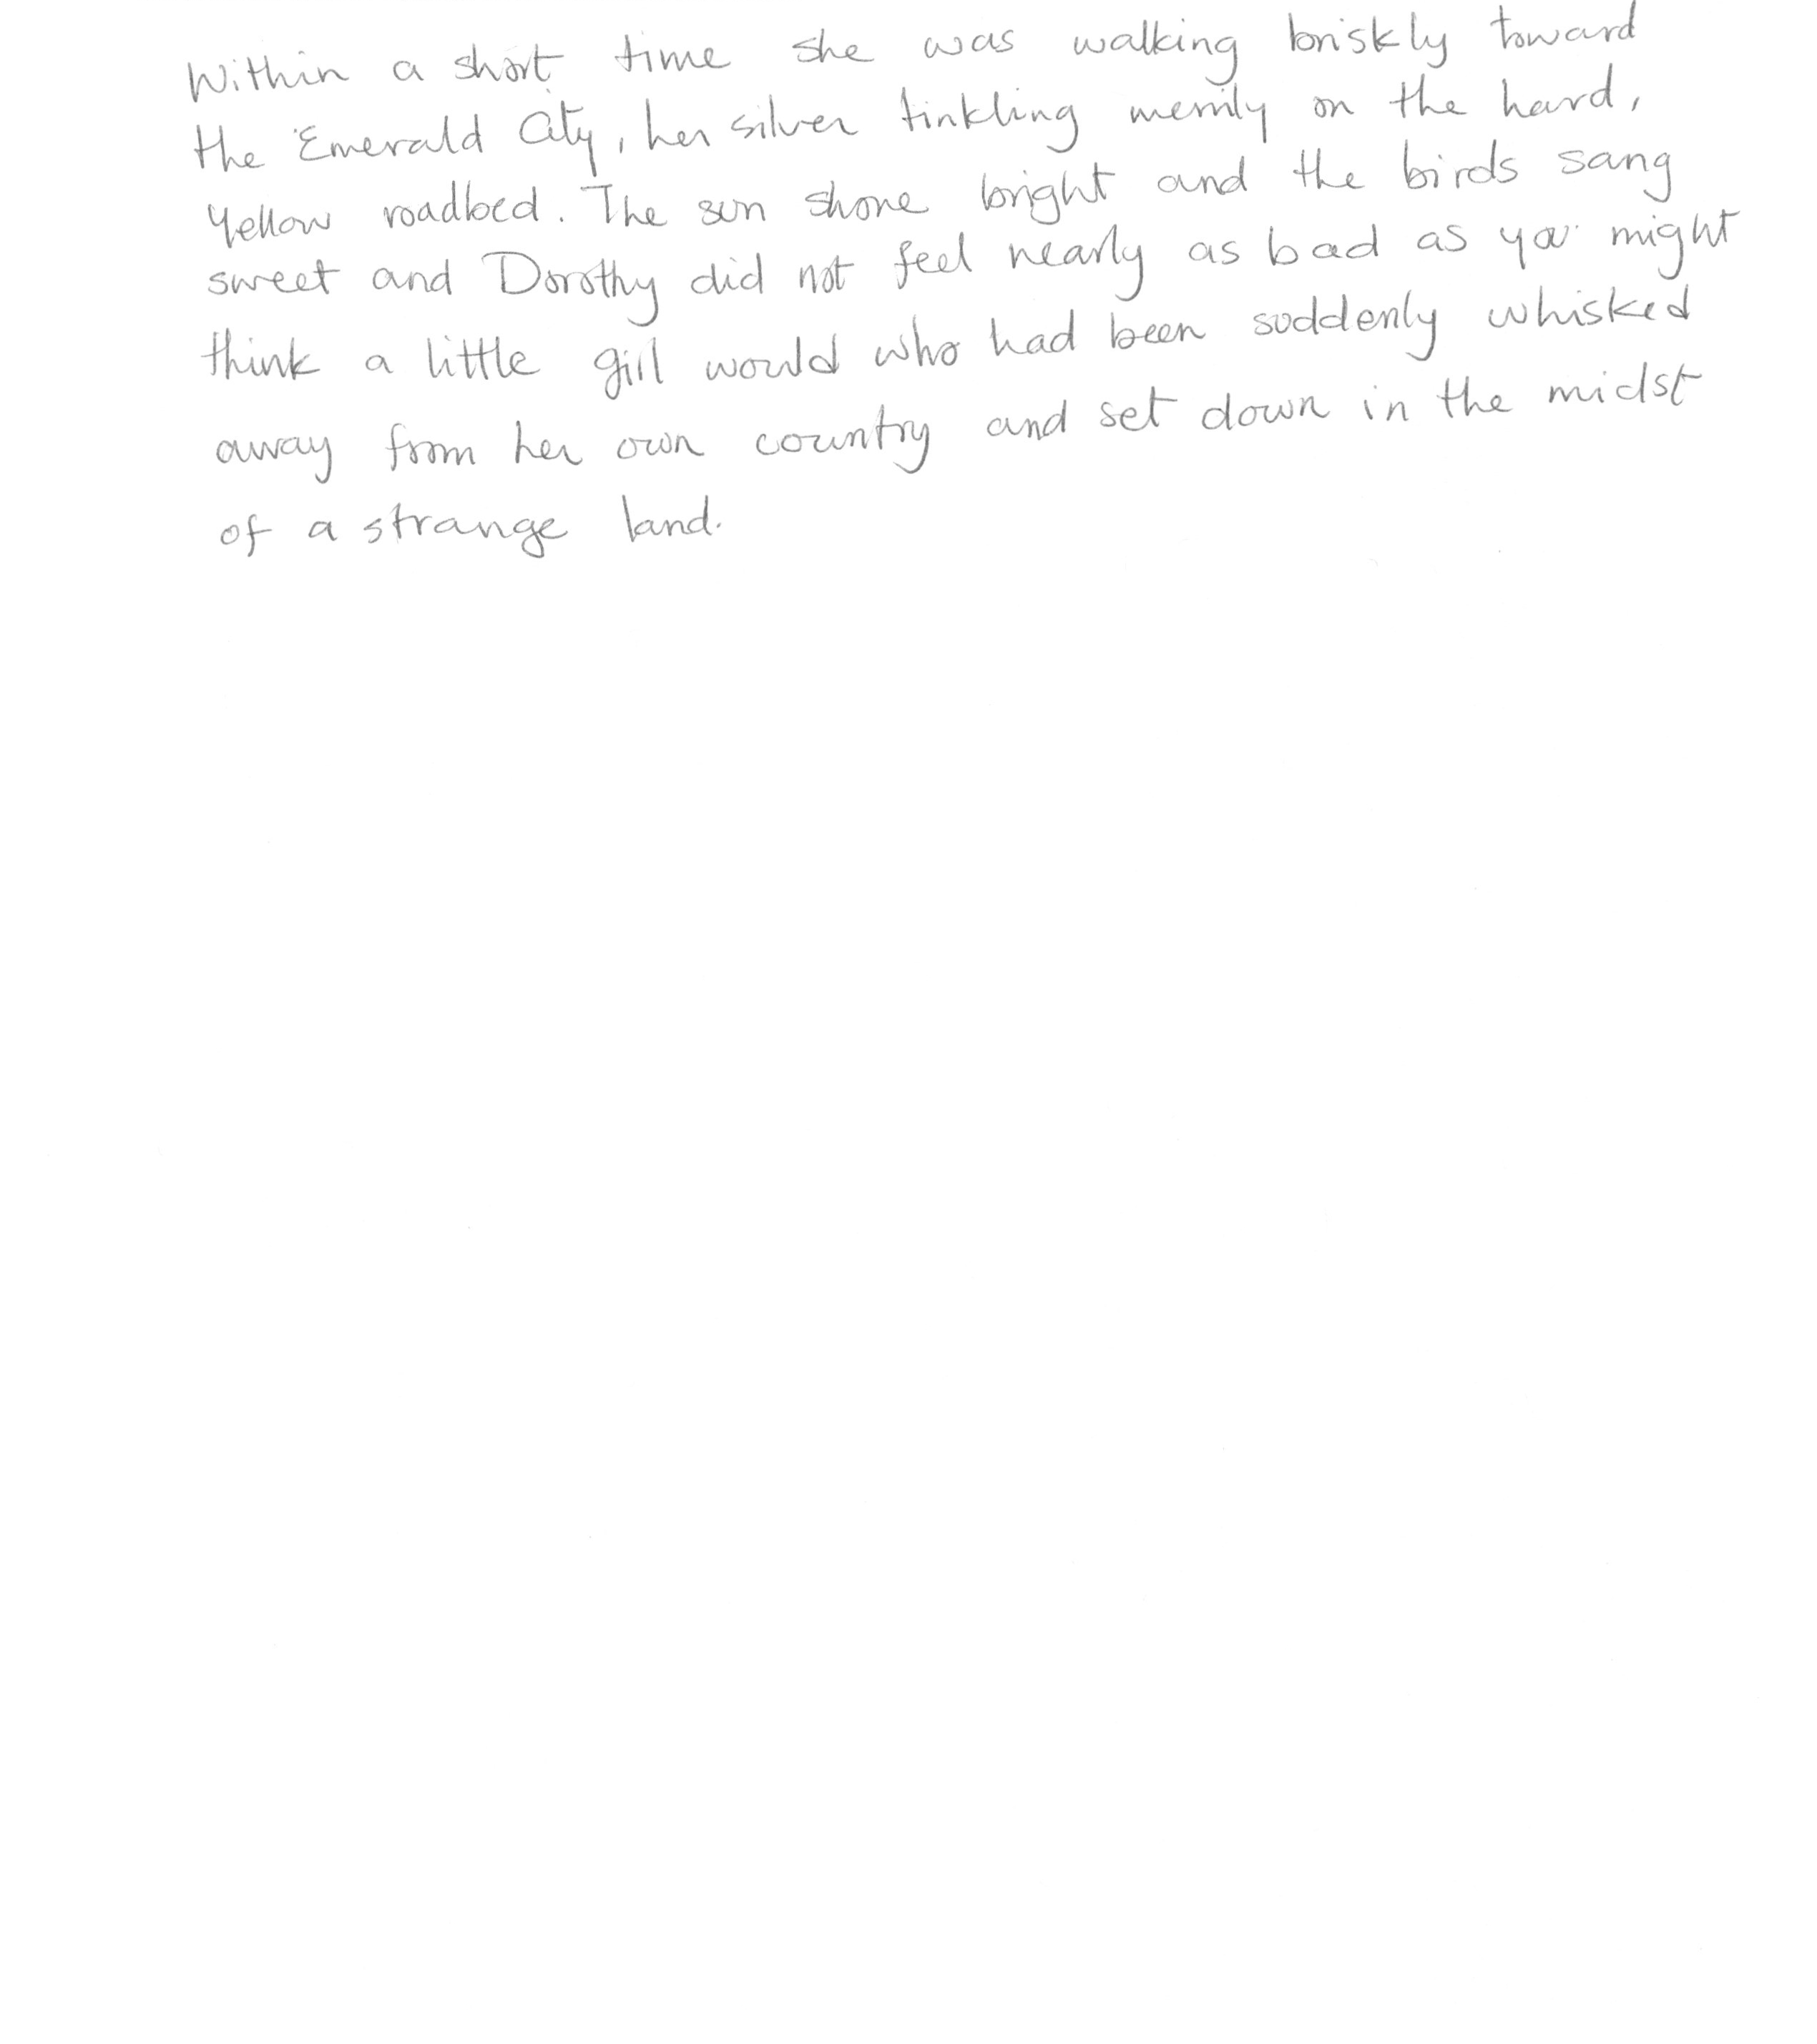 Within a short time she was walking briskly toward
the Emerald City, her silver tinkling merrily on the hard,
yellow roadbed. The sun shone bright and the birds sang
sweet and Dorothy did not feel nearly as bad as you might
think a little girl would who had been suddenly whisked
away from her own country and set down in the midst
of a strange land.